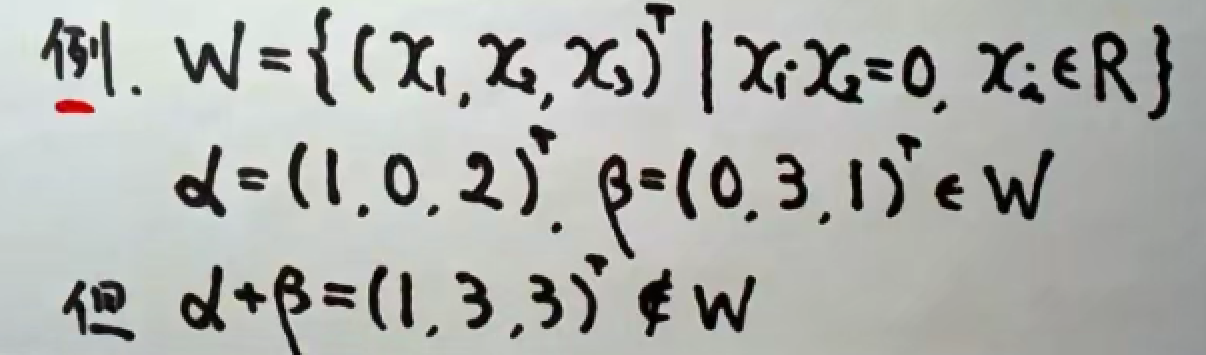 例. W={(x₁,x₂,x₃)ᵀ|x₁·x₂=0, xᵢ∈R}
α=(1,0,2)ᵀ, β=(0,3,1)ᵀ∈W
但 α+β=(1,3,3)ᵀ∉W